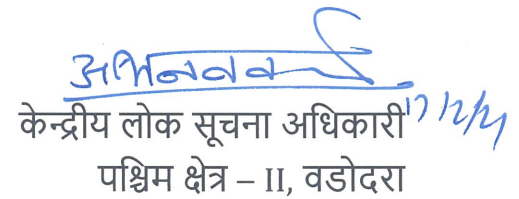 केन्द्रीय लोक सूचना अधिकारी 17/12/21
पश्चिम क्षेत्र – II, वडोदरा